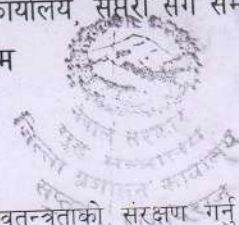 कार्यालय, सप्तरी सँग सम
म
नेपाल सरकार
गृह मन्त्रालय
जिल्ला प्रशासन कार्यालय
वतन्त्रताको संरक्षण गर्नु